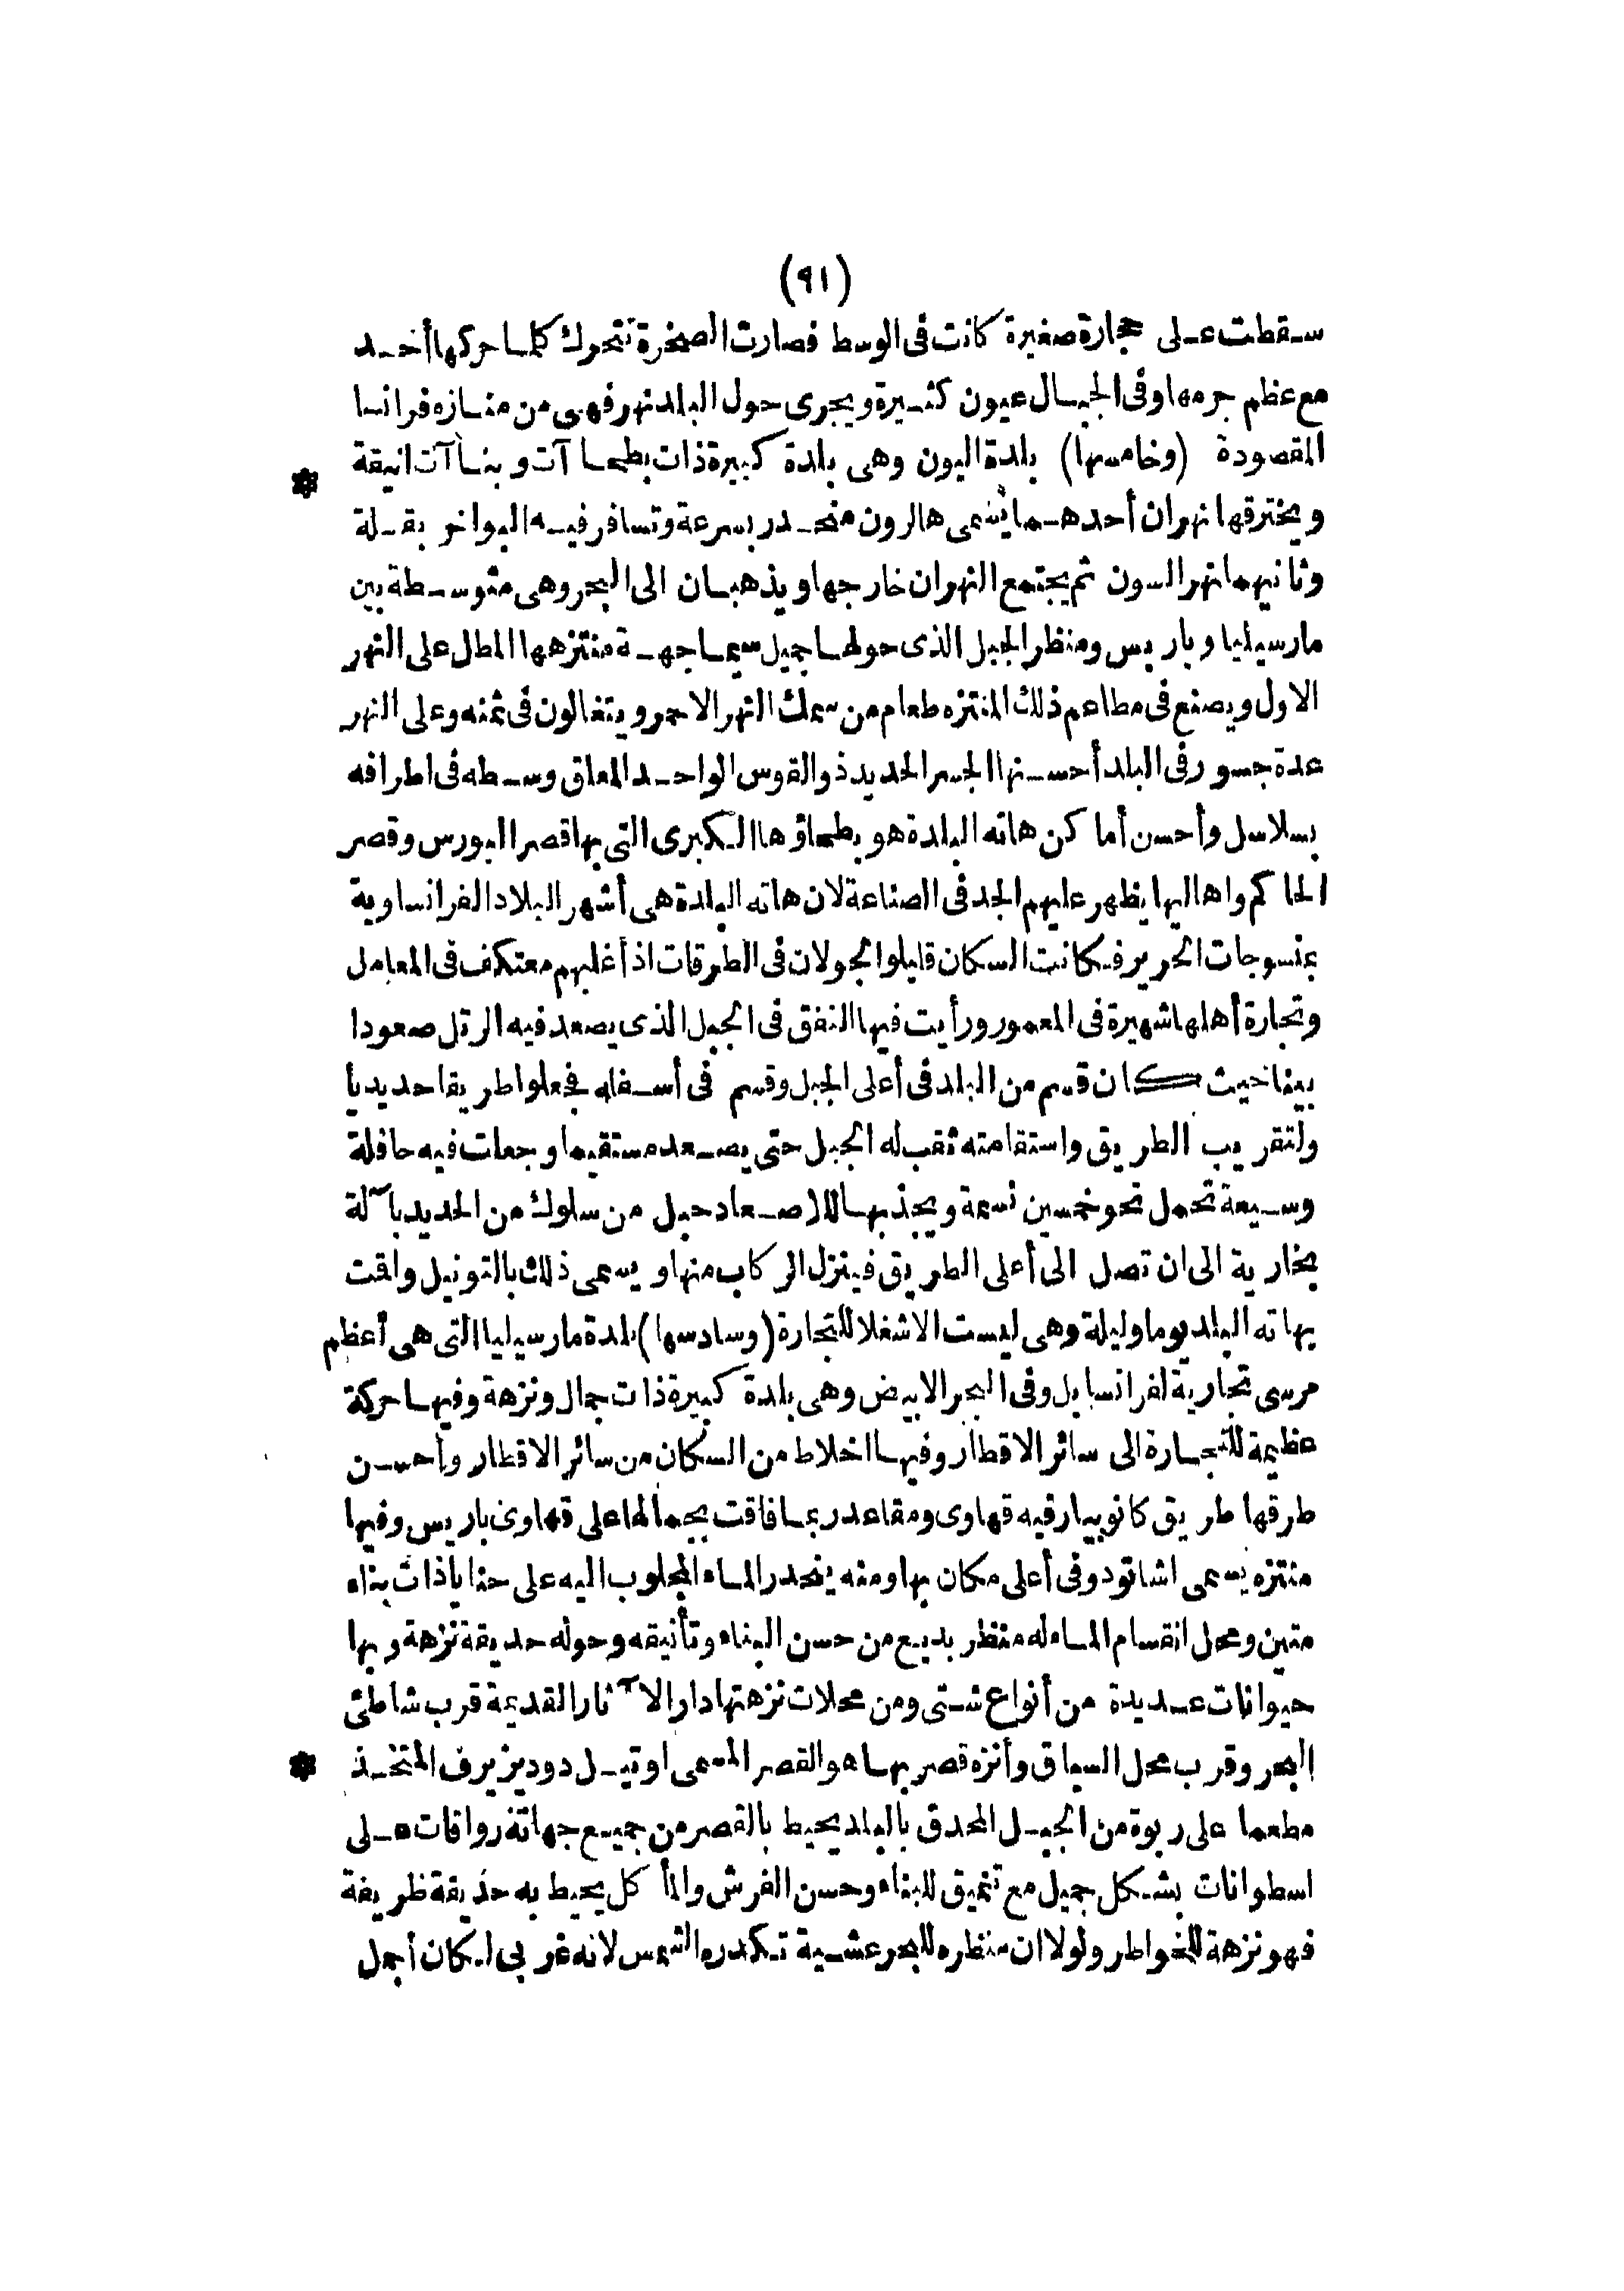 (٩١)
سقطت على حجارة صغيرة كانت فى الوسط فصارت الصخرة تتحرك كلما حركها أحد
مع عظم جرمها وفى الجبال عيون كثيرة ويجرى حول البلد نهر فهى من منازه فرانسا
المقصودة (وخامسها) بلدة اليون وهى بلدة كبيرة ذات بطحاآت وبناآت انيقة *
ويخترقها نهران أحدهما يسمى هالرون منحدر بسرعة وتسافر فيه البواخر بقلة
وثانيهما نهر السون ثم يجتمع النهران خارجها ويذهبان الى البحر وهى متوسطة بين
مارسيليا وباريس ومنظر الجبل الذى حولها جميل سيما جهة منتزهها المطل على النهر
الاول ويصنع فى مطاعم ذلك المنتزه طعام من سمك النهر الاحمر ويتغالون فى ثمنه وعلى النهر
عدة جسور فى البلد أحسنها الجسر الحديد ذو القوس الواحد المعلق وسطه فى اطرافه
بسلاسل وأحسن أماكن هاته البلدة هو بطحاؤها الكبرى التى بها قصر البورس وقصر
الحاكم واهاليها يظهر عليهم الجد فى الصناعة لان هاته البلدة هى أشهر البلاد الفرانساوية
بمنسوجات الحرير فكانت السكان قليلو الجولان فى الطرقات اذ أغلبهم معتكف فى المعامل
وتجارة أهلها شهيرة فى المعمور ورأيت فيها النفق فى الجبل الذى يصعد فيه الرتل صعودا
بينا حيث كان قسم من البلد فى أعلى الجبل وقسم فى أسفله فجعلوا طريقا حديديا
ولتقريب الطريق واستقامته ثقب له الجبل حتى يصعد مستقيما وجعلت فيه حافلة
وسيعة تحمل نحو خمسين نسمة ويجذبها للاصعاد حبل من سلوك من الحديد بآلة
بخارية الى ان تصل الى أعلى الطريق فينزل الركاب منها ويسمى ذلك بالتونيل واقت
بهاته البلد يوما وليلة وهى ليست الا شغلا للتجارة (وسادسها) بلدة مارسيليا التى هى أعظم
مرسى تجارية لفرانسا بل وفى البحر الابيض وهى بلدة كبيرة ذات جمال ونزهة وفيها حركة
عظيمة للتجارة الى سائر الاقطار وفيها اخلاط من السكان من سائر الاقطار وأحسن
طرقها طريق كانوبيار فيه قهاوى ومقاعد ربما فاقت بجمالها على قهاوى باريس وفيها
منتزه يسمى اشاتودو فى أعلى مكان بها ومنه ينحدر الماء المجلوب اليه على حنايا ذات بناء
متين ومحل انقسام الماء له منظر بديع من حسن البناء وتأنيقه وحوله حديقة نزهة وبها
حيوانات عديدة من أنواع شتى ومن محلات نزهتها دار الآثار القديمة قرب شاطئ
البحر وقرب محل السباق وأنزه قصر بها هو القصر المسمى اوتيل دوديزيرف المتخذ *
مطعما على ربوة من الجبل المحدق بالبلد يحيط بالقصر من جميع جهاته رواقات على
اسطوانات بشكل جميل مع تنميق للبناء وحسن الفرش والمأكل يحيط به حديقة ظريفة
فهو نزهة للخواطر ولولا ان منظره للبحر عشية تكدره الشمس لانه غربى لكان أجمل